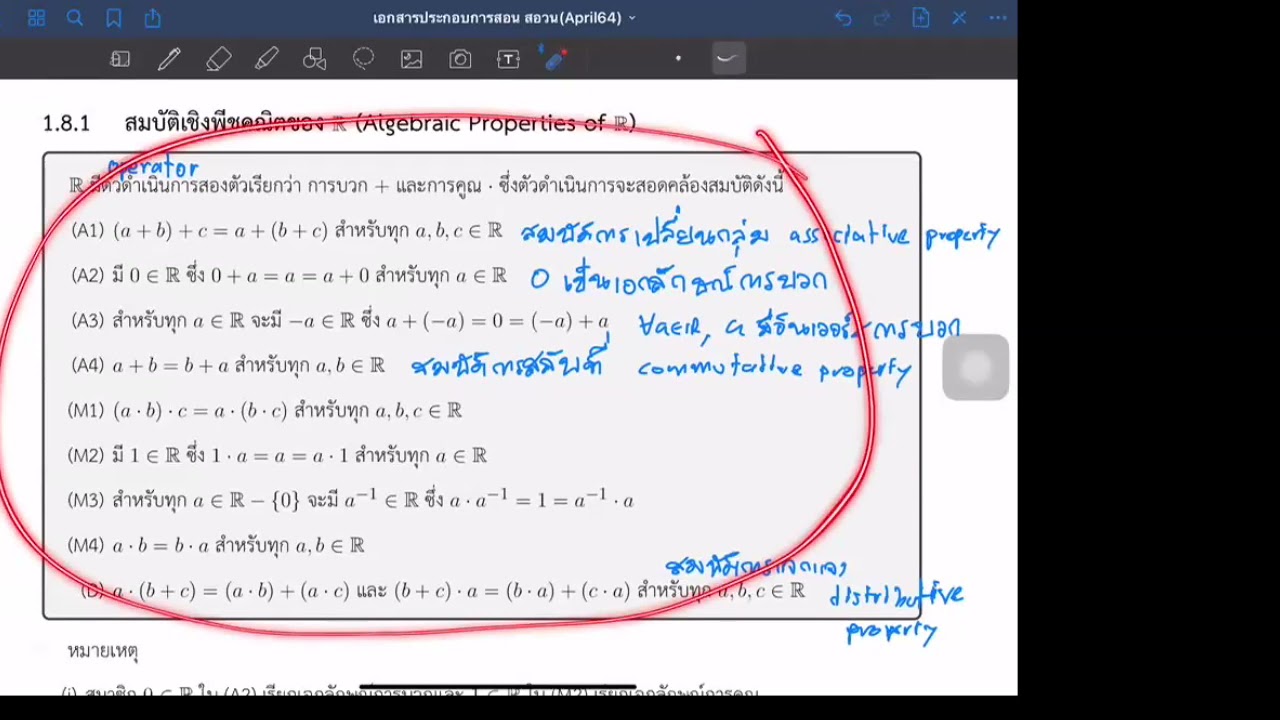 เอกสารประกอบการสอน สอวน(April64)
1.8.1 สมบัติเชิงพีชคณิตของ ℝ (Algebraic Properties of ℝ)
operator
ℝ มีตัวดำเนินการสองตัวเรียกว่า การบวก + และการคูณ · ซึ่งตัวดำเนินการจะสอดคล้องสมบัติดังนี้
(A1) (a + b) + c = a + (b + c) สำหรับทุก a, b, c ∈ ℝ สมบัติการเปลี่ยนกลุ่ม associative property
(A2) มี 0 ∈ ℝ ซึ่ง 0 + a = a = a + 0 สำหรับทุก a ∈ ℝ 0 เป็นเอกลักษณ์การบวก
(A3) สำหรับทุก a ∈ ℝ จะมี −a ∈ ℝ ซึ่ง a + (−a) = 0 = (−a) + a ∀a∈ℝ, a มีอินเวอร์สการบวก
(A4) a + b = b + a สำหรับทุก a, b ∈ ℝ สมบัติการสลับที่ commutative property
(M1) (a · b) · c = a · (b · c) สำหรับทุก a, b, c ∈ ℝ
(M2) มี 1 ∈ ℝ ซึ่ง 1 · a = a = a · 1 สำหรับทุก a ∈ ℝ
(M3) สำหรับทุก a ∈ ℝ − {0} จะมี a⁻¹ ∈ ℝ ซึ่ง a · a⁻¹ = 1 = a⁻¹ · a
(M4) a · b = b · a สำหรับทุก a, b ∈ ℝ
สมบัติการแจกแจง
(D) a · (b + c) = (a · b) + (a · c) และ (b + c) · a = (b · a) + (c · a) สำหรับทุก a, b, c ∈ ℝ distributive
property
หมายเหตุ
(i) สมาชิก 0 ∈ ℝ ใน (A2) เรียกเอกลักษณ์การบวกและ 1 ∈ ℝ ใน (M2) เรียกเอกลักษณ์การคูณ